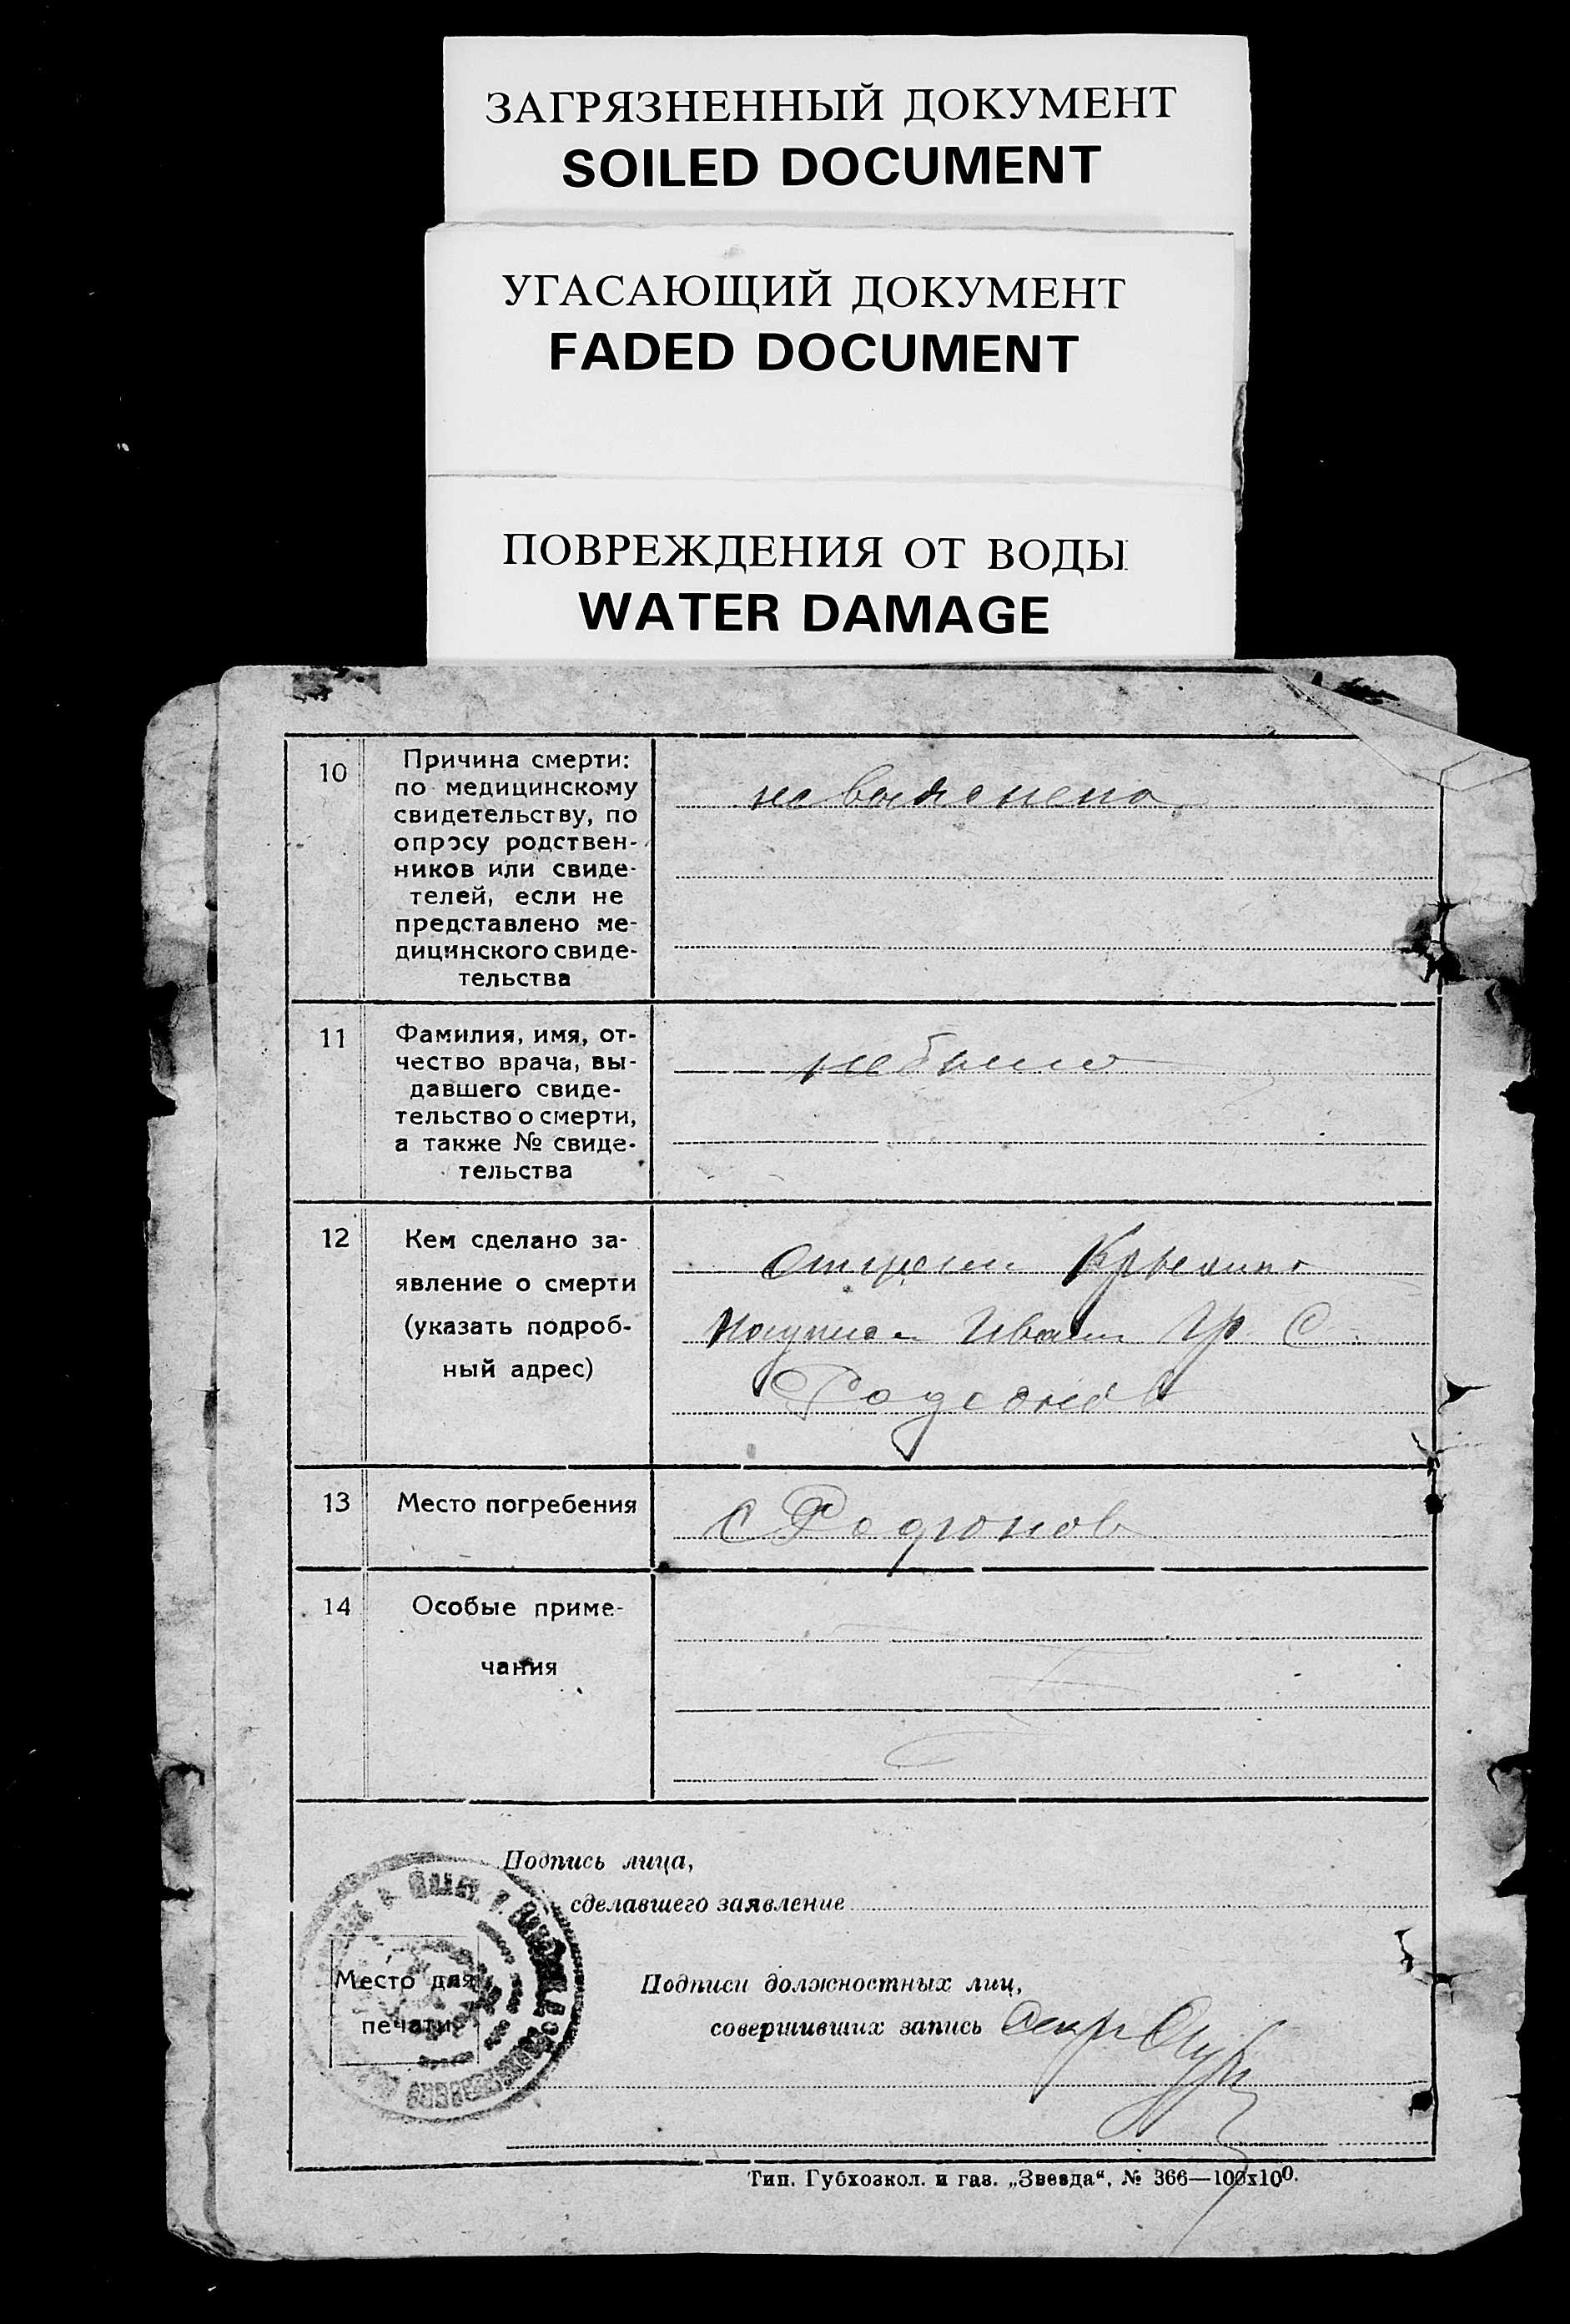 ЗАГРЯЗНЕННЫЙ ДОКУМЕНТ
SOILED DOCUMENT
УГАСАЮЩИЙ ДОКУМЕНТ
FADED DOCUMENT
ПОВРЕЖДЕНИЯ ОТ ВОДЫ
WATER DAMAGE
10
Причина смерти:
по медицинскому
свидетельству, по
опросу родствен-
ников или свиде-
телей, если не
представлено ме-
дицинского свиде-
тельства
не выяснена
11
Фамилия, имя, от-
чество врача, вы-
давшего свиде-
тельство о смерти,
а также № свиде-
тельства
не было
12
Кем сделано за-
явление о смерти
(указать подроб-
ный адрес)
Отцем
Иван гр. С
13
Место погребения
С Родионов
14
Особые приме-
чания
Подпись лица,
сделавшего заявление
Место для
печати
Подписи должностных лиц,
совершивших запись Секр
Тип. Губхозкол. и газ. „Звезда“, № 366—100х100.